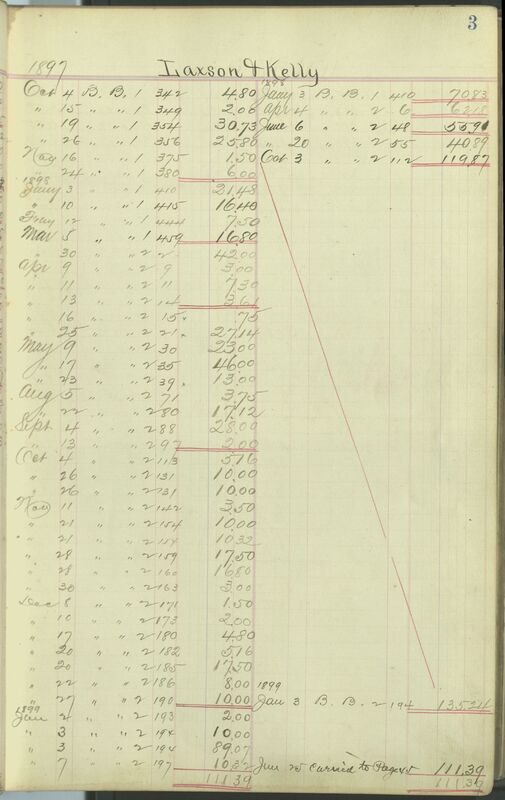 3
1897 Laxson & Kelly
1898
Oct 4 B. B. 1 342 4.80 Jany 3 B. B. 1 410 70.83
" 15 " " 1 349 2.06 Apr 4 " " 2 6 62.18
" 19 " " 1 354 30.73 June 6 " " 2 48 55.91
" 26 " " 1 356 25.80 " 20 " " 2 55 40.89
Nov 16 " " 1 375 1.50 Oct 3 " " 2 112 119.87
" 24 " " 1 380 6.00
1898
Jany 3 " " 1 410 21.48
" 10 " " 1 415 16.40
Feby 12 " " 1 444 7.50
Mar 5 " " 1 459 16.80
" 30 " " 2 2 42.00
Apr 9 " " 2 9 3.00
" 11 " " 2 11 7.30
" 13 " " 2 14 3.61
" 16 " " 2 15 .75
" 25 " " 2 21 27.14
May 9 " " 2 30 23.00
" 17 " " 2 35 46.00
" 23 " " 2 39 13.00
Aug 5 " " 2 71 3.75
" 22 " " 2 80 17.12
Sept 4 " " 2 88 28.00
" 13 " " 2 97 2.00
Oct 4 " " 2 113 5.76
" 26 " " 2 131 10.00
" 26 " " 2 131 10.00
Nov 11 " " 2 142 3.50
" 21 " " 2 154 10.00
" 21 " " 2 154 10.32
" 28 " " 2 159 17.50
" 28 " " 2 160 16.80
" 30 " " 2 163 3.00
Dec 8 " " 2 171 1.50
" 10 " " 2 173 2.00
" 17 " " 2 180 4.80
" 20 " " 2 182 5.16
" 20 " " 2 185 17.50
" 22 " " 2 186 8.00 1899
" 27 " " 2 190 10.00 Jan 3 B. B. 2 194 135.24
1899
Jan 2 " " 2 193 2.00
" 3 " " 2 194 10.00
" 3 " " 2 194 89.07
" 7 " " 2 197 10.32 Jan 25 carried to Page 45 111.39
111.39 111.39